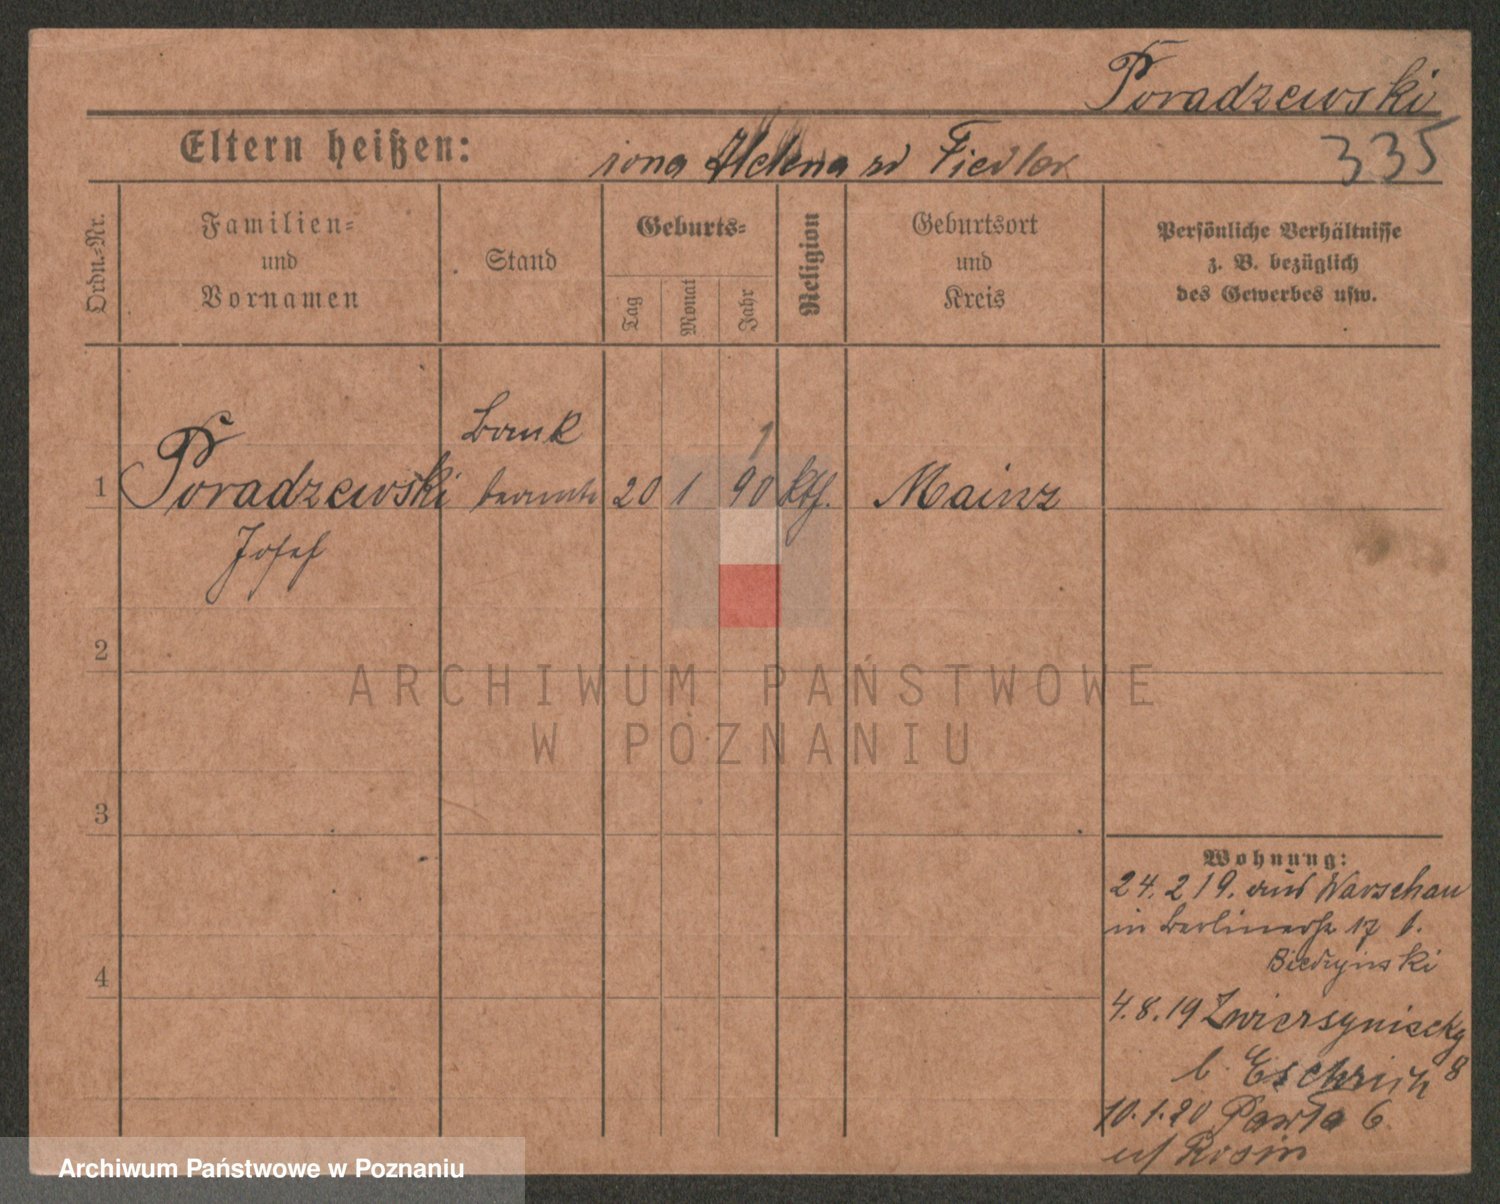 Poradzewski
335
Eltern heißen: żona Helena zd Fiedler
Ordn.=Nr.
Familien=
und
Vornamen
Stand
Geburts=
Tag
Monat
Jahr
Religion
Geburtsort
und
Kreis
Persönliche Verhältnisse
z. B. bezüglich
des Gewerbes usw.
Bank
1 Poradzewski beamter 20 1 90 kth. Mainz
Josef
2
3
4
Wohnung:
24.2 19. aus Warschau
in Berlinerstr 17 b.
Biedrzinski
4.8.19 Zwierzyniecka
8
b. Eschrich
10.1.20 Pawła 6
u/ Rosin
ARCHIWUM PAŃSTWOWE
W POZNANIU
Archiwum Państwowe w Poznaniu